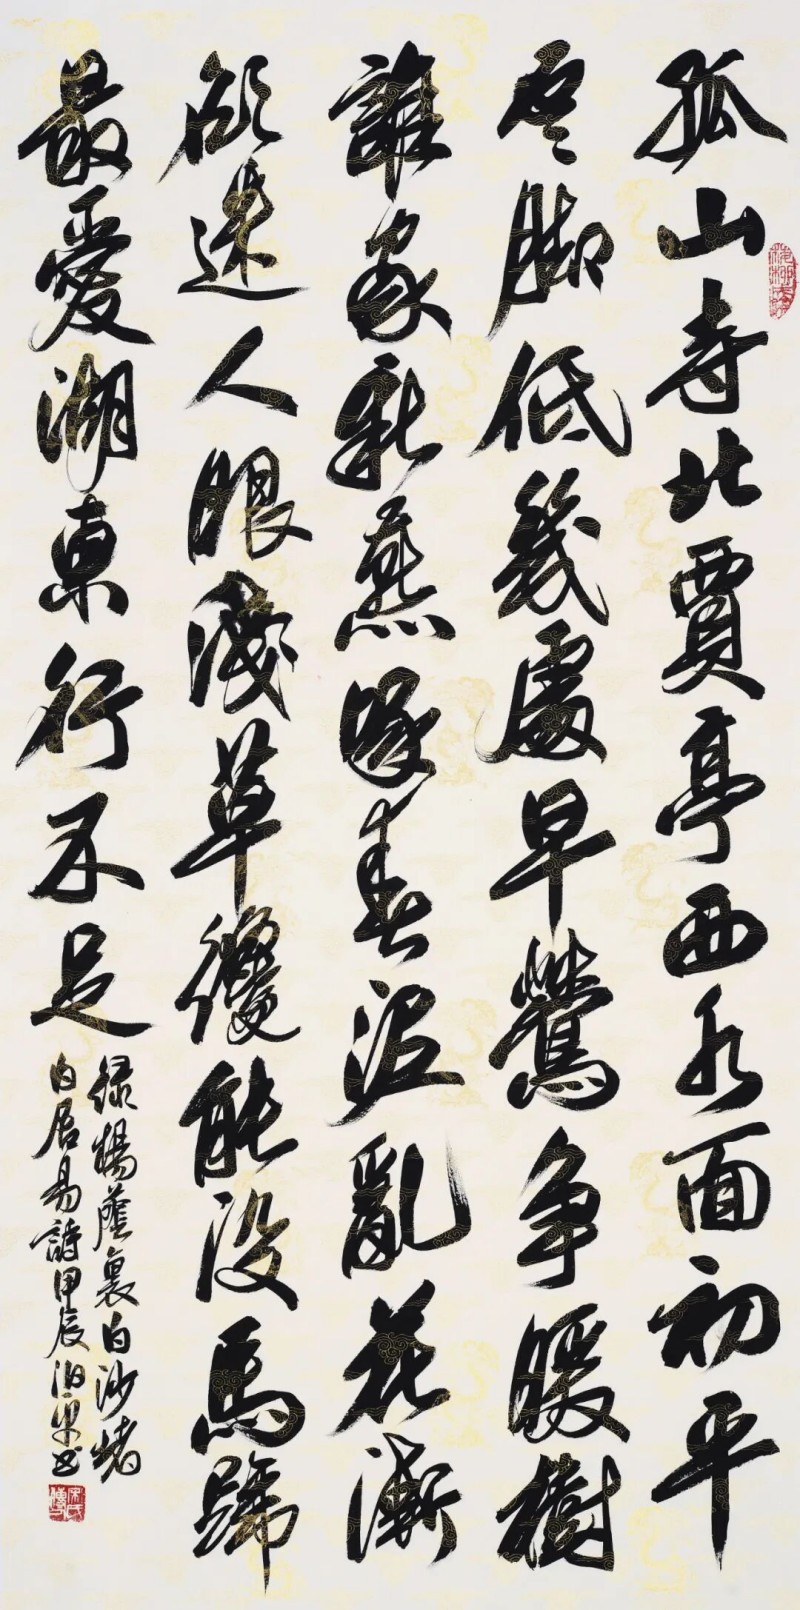 孤山寺北賈亭西水面初平
雲脚低幾處早鶯争暖樹
誰家新燕啄春泥亂花漸
欲迷人眼淺草纔能没馬蹄
最愛湖東行不足
緑楊蔭裏白沙堤
白居易詩甲辰